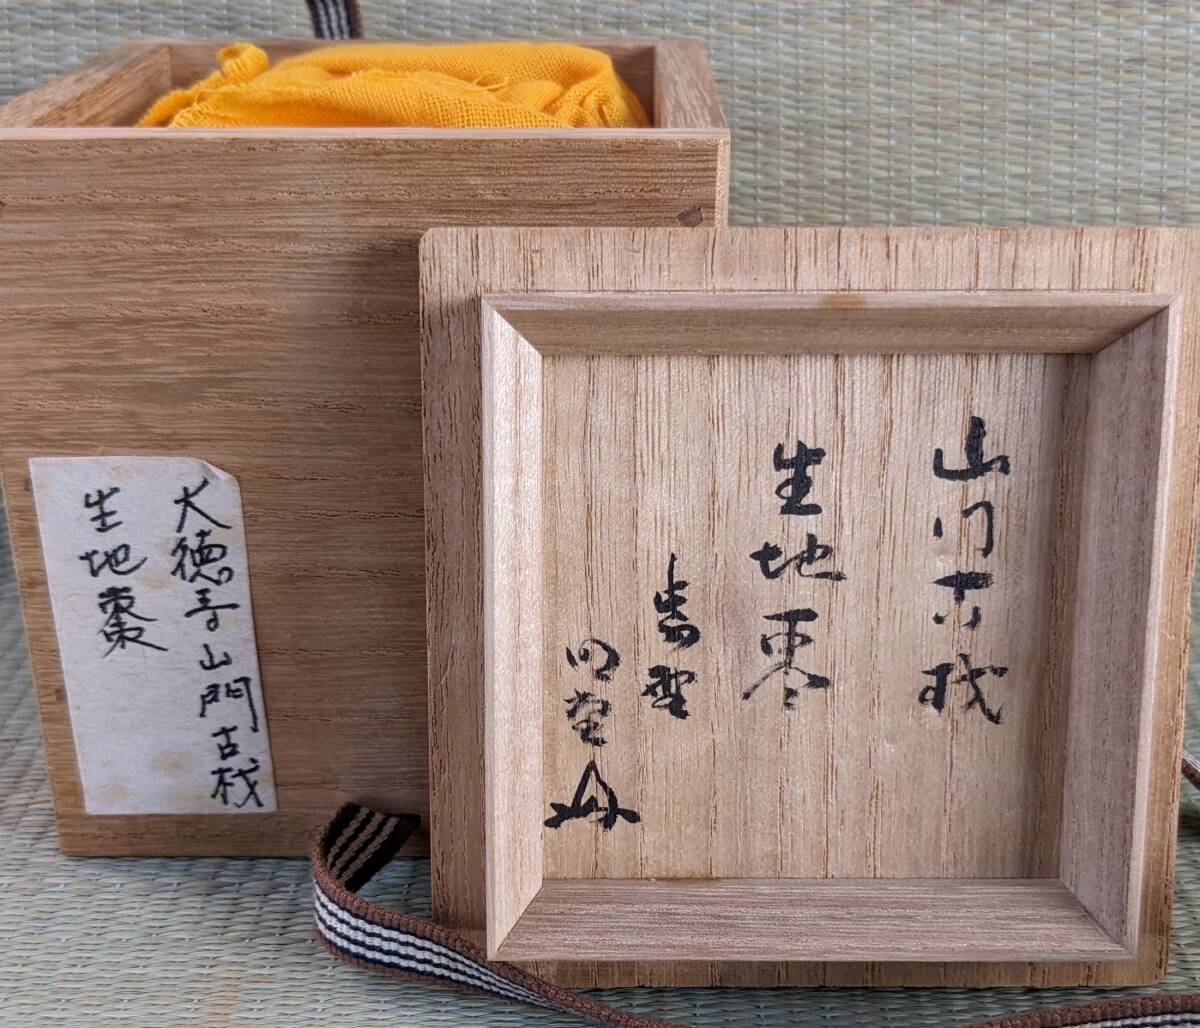 山門古材
生地棗
紫野
明堂
大徳寺山門古材
生地棗